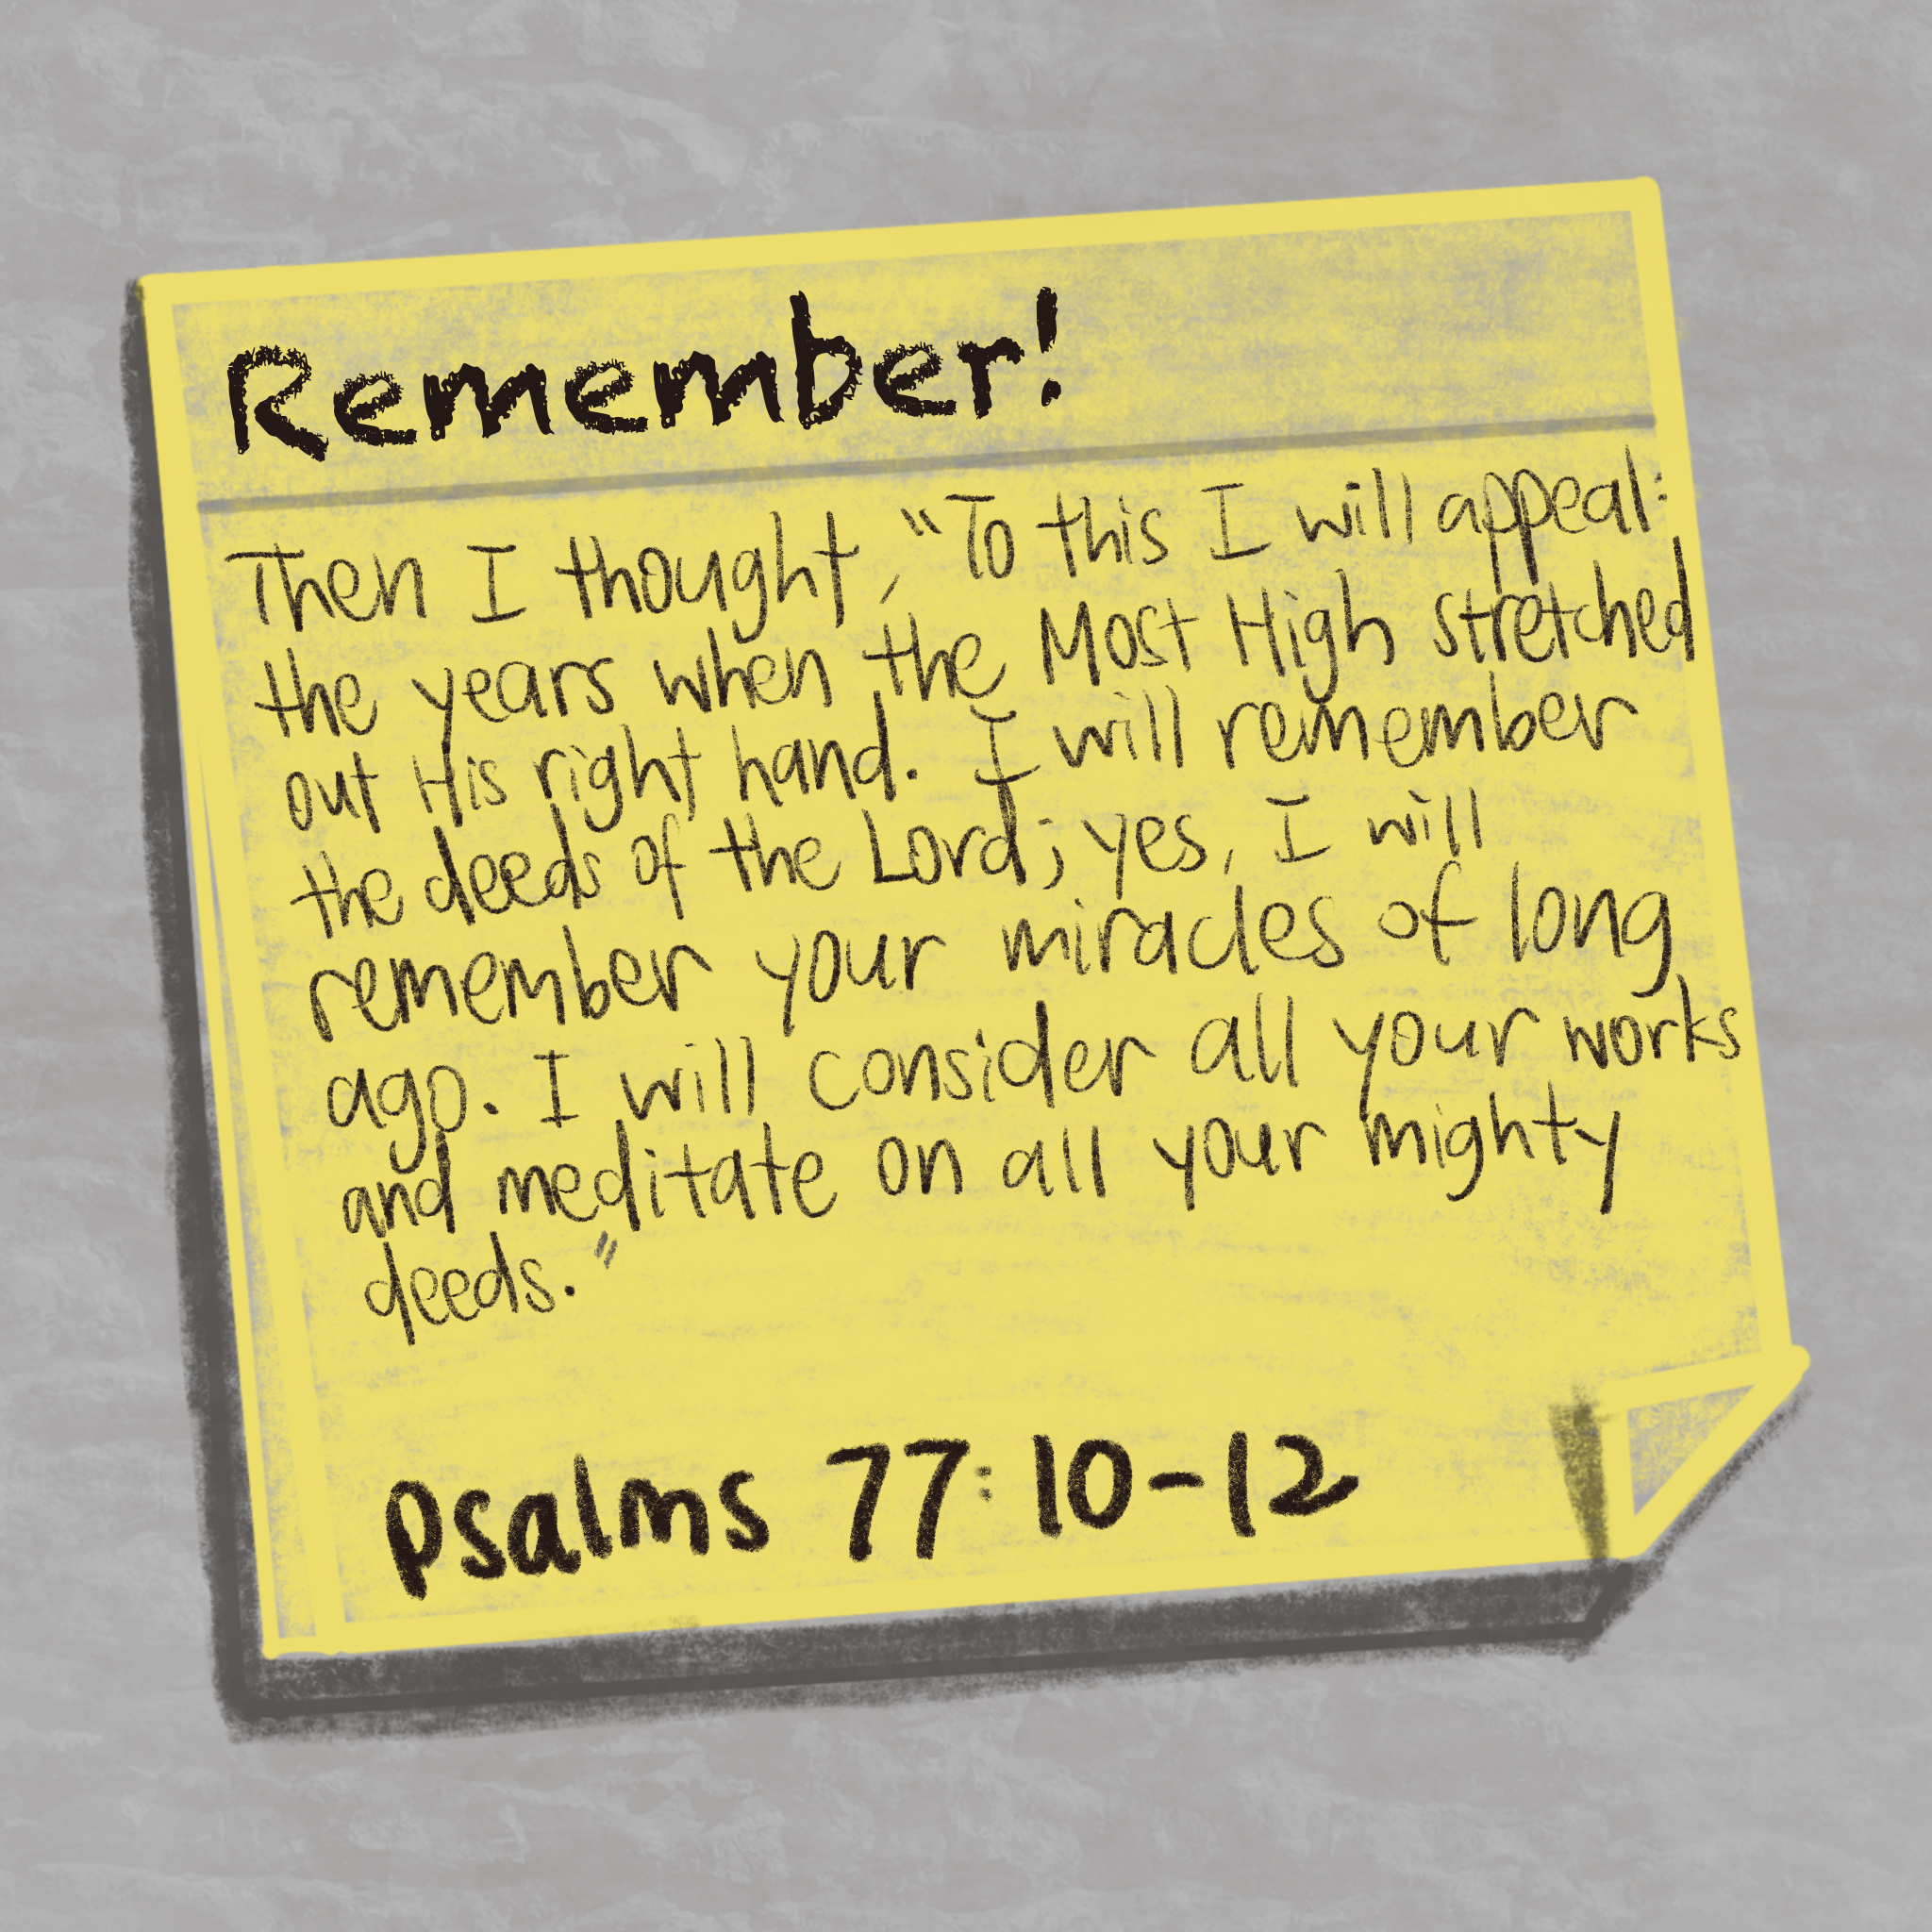 Remember!
Then I thought, "To this I will appeal:
the years when the Most High stretched
out His right hand. I will remember
the deeds of the Lord; yes, I will
remember your miracles of long
ago. I will consider all your works
and meditate on all your mighty
deeds."
Psalms 77:10-12